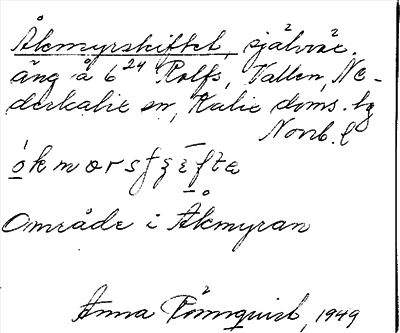 Åkmyrskiftet, självräc.
äng å 6²⁴ Rolfs, Vallen, Ne-
derkalix sn, Kalix doms. hg
Norrb. l
Område i Åkmyran
Anna Rönnqvist, 1949